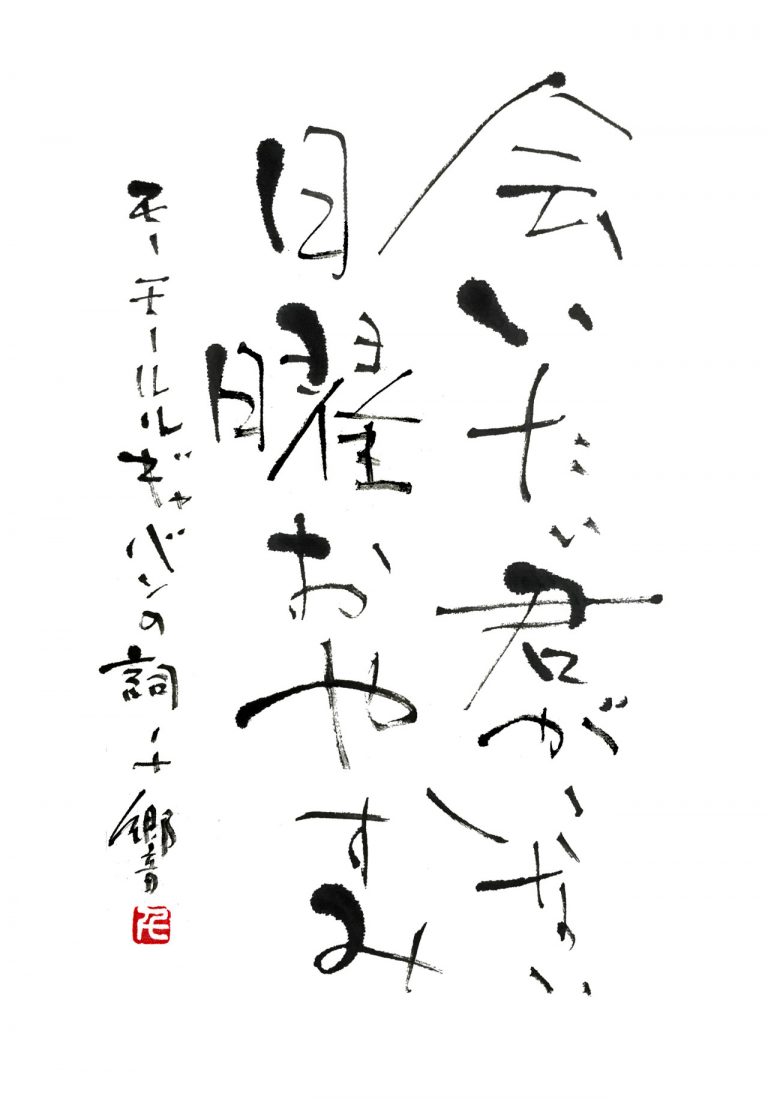 会いたい君がいない
日曜おやすみ
モーモールルギャバンの詞 千響